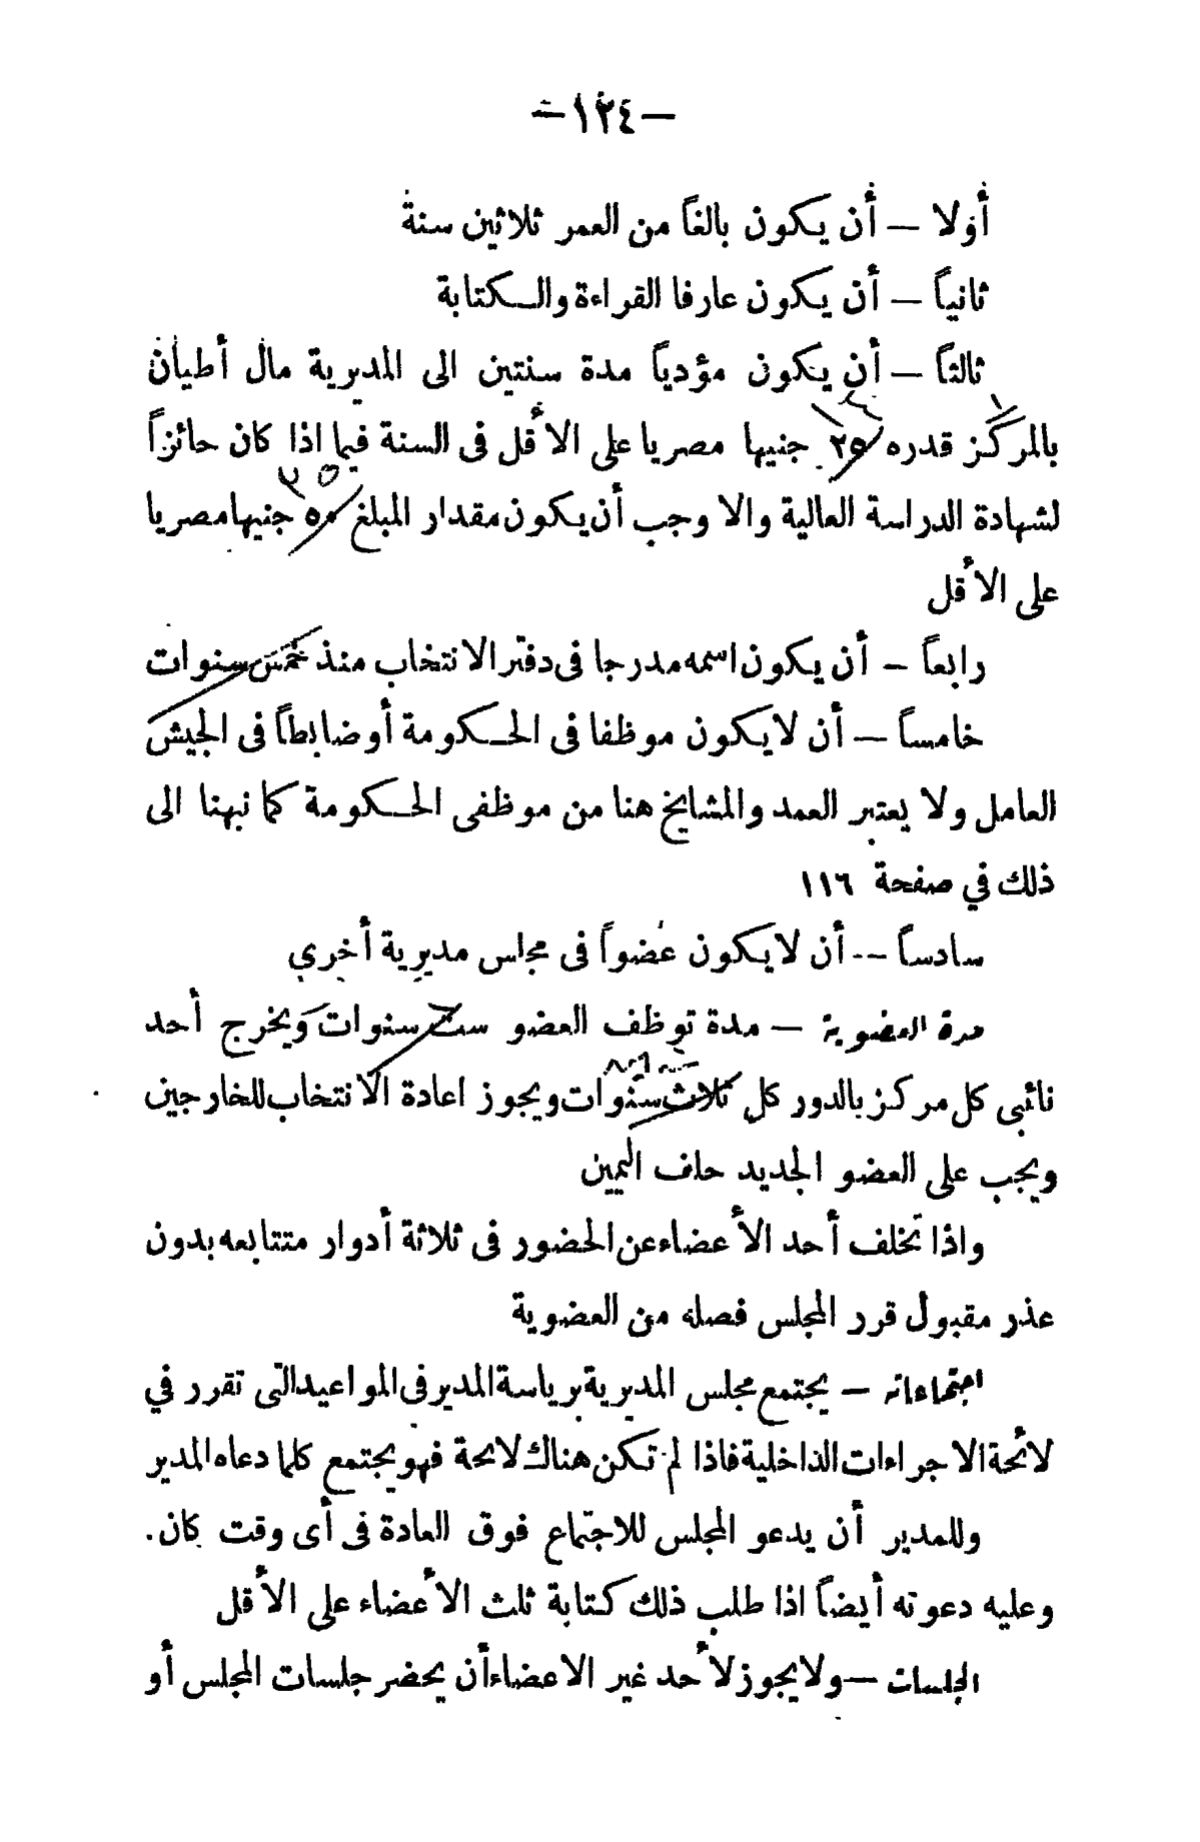 — ١٢٤ —
أولا — أن يكون بالغاً من العمر ثلاثين سنة
ثانياً — أن يكون عارفا القراءة والكتابة
ثالثاً — أن يكون مؤدياً مدة سنتين الى المديرية مال أطيان
بالمركز قدره ٢٥ جنيها مصريا على الأقل فى السنة فيما اذا كان حائزاً
لشهادة الدراسة العالية والا وجب أن يكون مقدار المبلغ ٥٠ جنيها مصريا
على الأقل
رابعاً — أن يكون اسمه مدرجا فى دفتر الانتخاب منذ خمس سنوات
خامساً — أن لا يكون موظفا فى الحكومة أو ضابطاً فى الجيش
العامل ولا يعتبر العمد والمشايخ هنا من موظفى الحكومة كما نبهنا الى
ذلك في صفحة ١١٦
سادساً — أن لا يكون عضواً فى مجلس مديرية أخري
مدة العضوية — مدة توظف العضو ست سنوات ويخرج أحد
نائبى كل مركز بالدور كل ثلاث سنوات ويجوز اعادة الانتخاب للخارجين
ويجب على العضو الجديد حلف اليمين
واذا تخلف أحد الأعضاء عن الحضور فى ثلاثة أدوار متتابعه بدون
عذر مقبول قرر المجلس فصله من العضوية
اجتماعاته — يجتمع مجلس المديرية برياسة المدير فى المواعيد التى تقرر في
لائحة الاجراءات الداخلية فاذا لم تكن هناك لائحة فهو يجتمع كلما دعاه المدير
وللمدير أن يدعو المجلس للاجتماع فوق العادة فى أى وقت كان.
وعليه دعوته أيضاً اذا طلب ذلك كتابة ثلث الأعضاء على الأقل
الجلسات — ولا يجوز لأحد غير الاعضاء أن يحضر جلسات المجلس أو